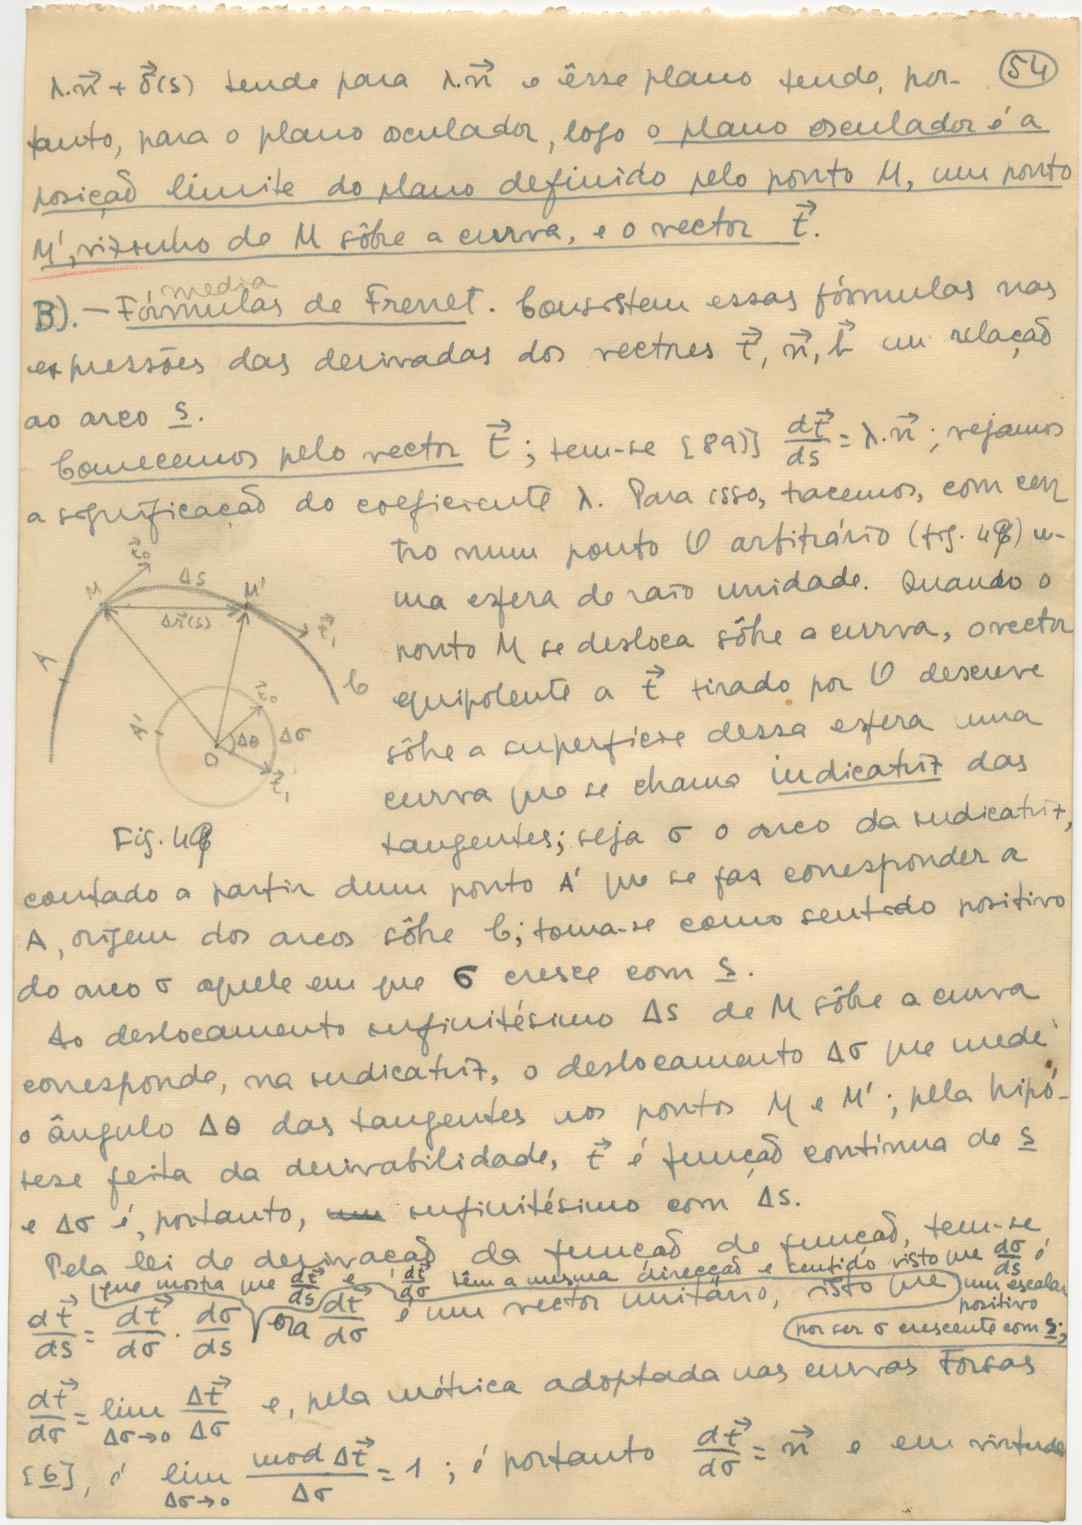 54
λ.n⃗ + δ⃗(s) tende para λ.n⃗ e êsse plano tende, por-
tanto, para o plano osculador, logo o plano osculador é a
posição limite do plano definido pelo ponto M, um ponto
M', vizinho de M sôbre a curva, e o vector t⃗.
media
B).- Fórmulas de Frenet. Consistem essas fórmulas nas
expressões das derivadas dos vectores t⃗, n⃗, b⃗ em relação
ao arco s.
Comecemos pelo vector t⃗; tem-se [89)] dt⃗/ds = λ.n⃗; vejamos
a significação do coeficiente λ. Para isso, tracemos, com cen
tro num ponto O arbitrário (fig. 48) u-
ma esfera de raio unidade. Quando o
ponto M se desloca sôbre a curva, o vector
equipolente a t⃗ tirado por O descreve
sôbre a superfície dessa esfera uma
curva que se chama indicatriz das
tangentes; seja σ o arco da indicatriz,
M t⃗₀ Δs M'
Δr⃗(s) t⃗₁
A C
A' t⃗₀
O Δθ Δσ
t⃗₁
Fig. 48
contado a partir dum ponto A' que se faz corresponder a
A, origem dos arcos sôbre C; toma-se como sentido positivo
do arco σ aquele em que σ cresce com s.
Ao deslocamento infinitésimo Δs de M sôbre a curva
corresponde, na indicatriz, o deslocamento Δσ que mede
o ângulo Δθ das tangentes nos pontos M e M'; pela hipó-
tese feita da derivabilidade, t⃗ é função contínua de s
e Δσ é, portanto, infinitésimo com Δs.
Pela lei de derivação da função de função, tem-se
que mostra que dt⃗/ds e dt⃗/dσ têm a mesma direcção e sentido visto que dσ/ds é
um escalar
positivo
por ser σ crescente com s;
dt⃗/ds = dt⃗/dσ . dσ/ds ora dt⃗/dσ é um vector unitário, visto que
dt⃗/dσ = lim Δσ→0 Δt⃗/Δσ e, pela métrica adoptada nas curvas Forsas
[6], é lim Δσ→0 mod Δt⃗/Δσ = 1; é portanto dt⃗/dσ = n⃗ e em virtude